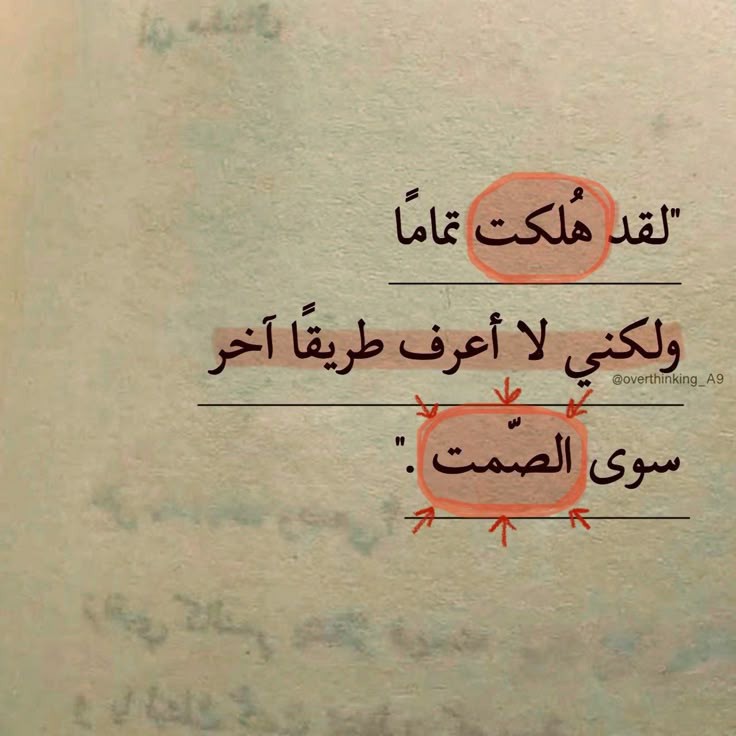 "لقد هُلكت تمامًا
ولكني لا أعرف طريقًا آخر
@overthinking_A9
سوى الصّمت ."